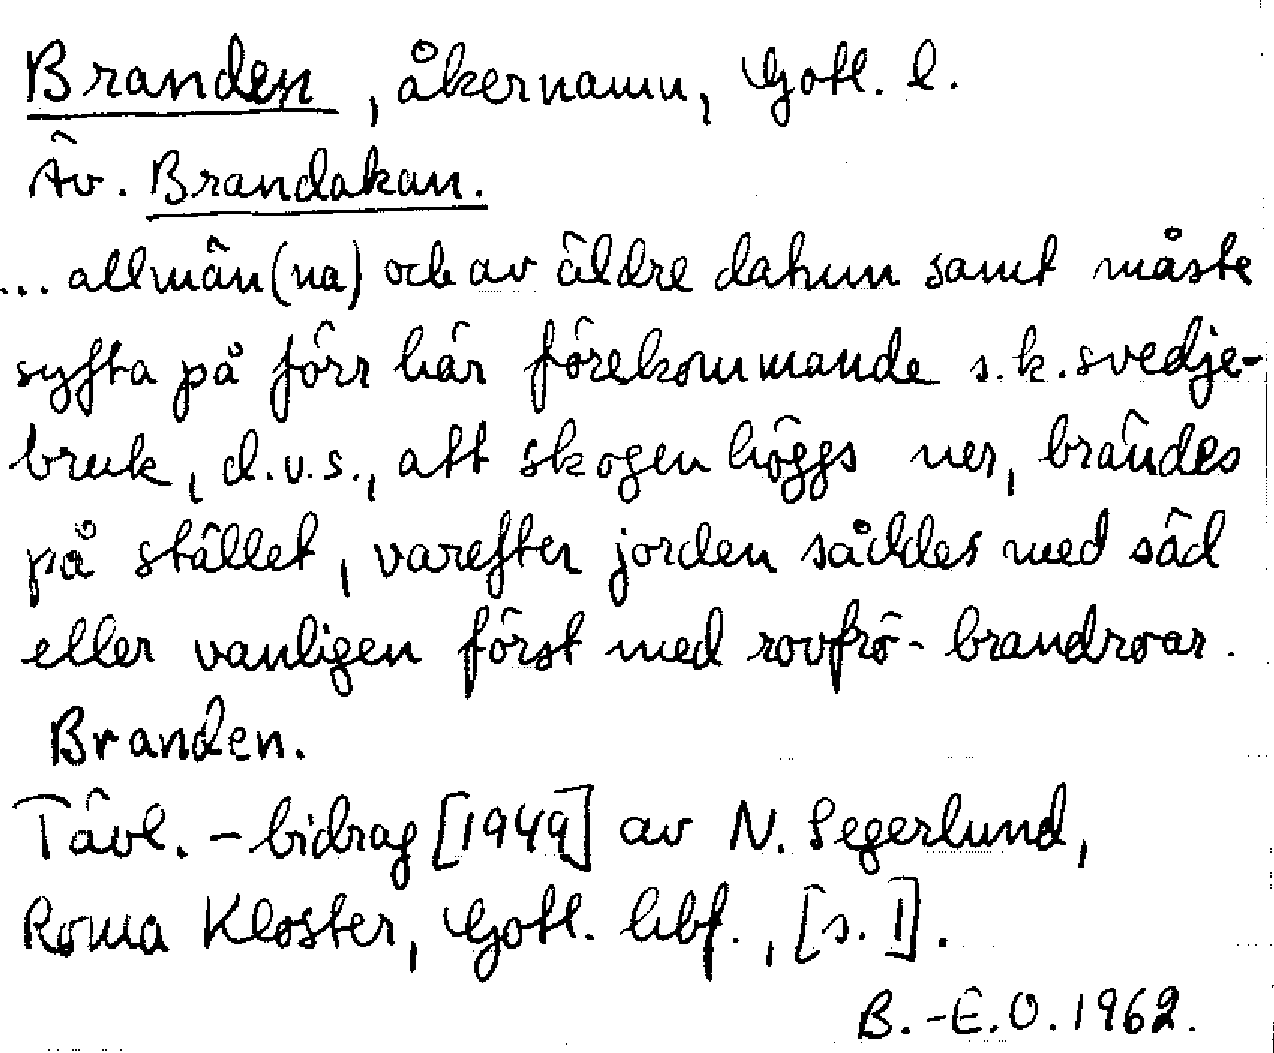 Branden, åkernamn, Gotl. l.
Äv. Brandakan.
... allmän(na) och av äldre datum samt måste
syfta på förr här förekommande s.k. svedje-
bruk, d.v.s., att skogen höggs ner, brändes
på stället, varefter jorden såddes med säd
eller vanligen först med rovfrö - brandrovar.
Branden.
Tävl. - bidrag [1949] av N. Segerlund,
Roma Kloster, Gotl. hbf., [s. 1].
B.-E.O. 1962.